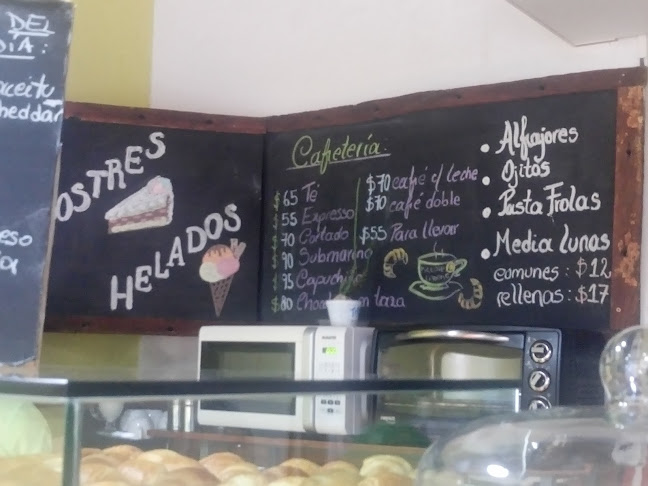 DEL
DÍA:
aceitu
heddar
eso
OSTRES
HELADOS
Cafetería:
$65 Té
$55 Expresso
$70 Cortado
$90 Submarino
$95 Capuchi
$80 Choc en taza
$70 café c/ leche
$70 café doble
$55 Para llevar
• Alfajores
• Ojitos
• Pasta Frolas
• Media Lunas
comunes: $12
rellenas: $17